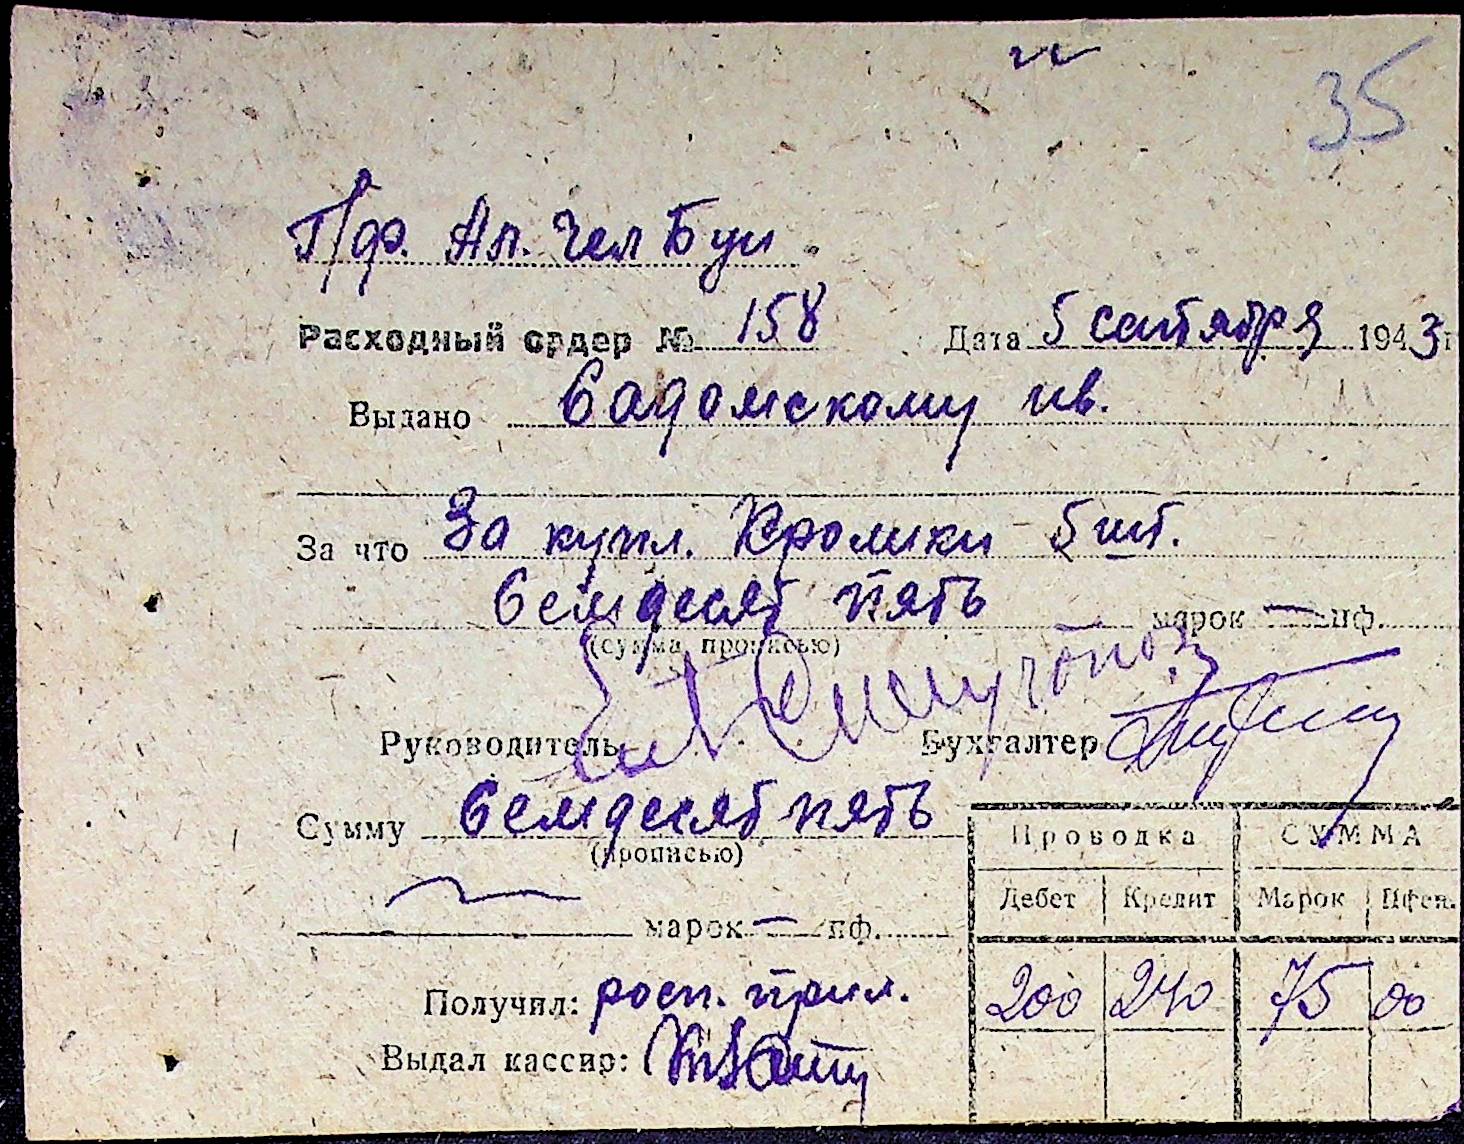 35
П/ф. Ал. Чел Буи
Расходный ордер № 158 Дата 5 сентября 1943 г
Выдано Садомскому ив.
За что За купл. Кролики – 5 шт.
Семдесят пять марок — пф.
(сумма прописью)
Руководитель Бухгалтер
Сумму Семдесят пять
(прописью)
марок — пф.
Проводка СУММА
Дебет Кредит Марок Пфен.
200 240 75 00
Получил: росп. прил.
Выдал кассир: